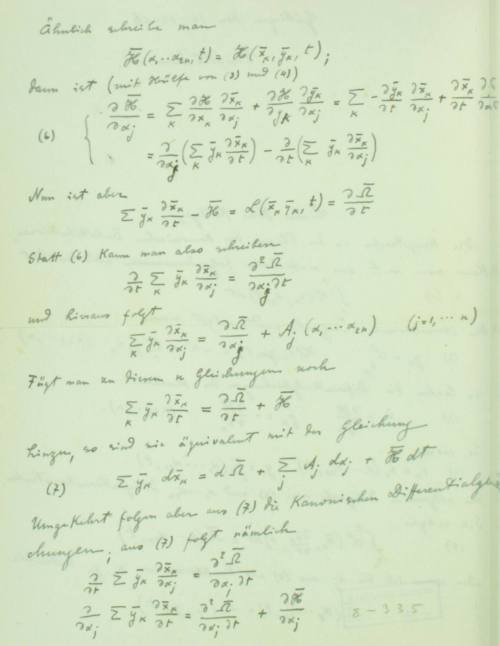 Ähnlich schreibe man
H̅(α₁…α₂ₙ, t) = H(x̅ₖ, y̅ₖ, t);
dann ist (mit Hülfe von (3) und (4))
∂H̅/∂αⱼ = Σₖ ∂H/∂xₖ ∂x̅ₖ/∂αⱼ + ∂H/∂yₖ ∂y̅ₖ/∂αⱼ = Σₖ −∂y̅ₖ/∂t ∂x̅ₖ/∂αⱼ + ∂x̅ₖ/∂t
(6) = ∂/∂αⱼ (Σₖ y̅ₖ ∂x̅ₖ/∂t) − ∂/∂t (Σₖ y̅ₖ ∂x̅ₖ/∂αⱼ)
Nun ist aber
Σ y̅ₖ ∂x̅ₖ/∂t − H̅ = L(x̅ₖ y̅ₖ, t) = ∂Ω̅/∂t
Statt (6) kann man also schreiben
∂/∂t Σₖ y̅ₖ ∂x̅ₖ/∂αⱼ = ∂²Ω̅/∂αⱼ∂t
und hieraus folgt
Σₖ y̅ₖ ∂x̅ₖ/∂αⱼ = ∂Ω̅/∂αⱼ + Aⱼ (α₁…α₂ₙ) (j=1,…n)
Fügt man zu diesen n Gleichungen noch
Σₖ y̅ₖ ∂x̅ₖ/∂t = ∂Ω̅/∂t + H̅
hinzu, so sind sie äquivalent mit der Gleichung
(7) Σ y̅ₖ dx̅ₖ = dΩ̅ + Σⱼ Aⱼ dαⱼ + H̅ dt
Umgekehrt folgen aber aus (7) die kanonischen Differentialglei-
chungen; aus (7) folgt nämlich
∂/∂t Σ y̅ₖ ∂x̅ₖ/∂αⱼ = ∂²Ω̅/∂αⱼ∂t
∂/∂αⱼ Σ y̅ₖ ∂x̅ₖ/∂t = ∂²Ω̅/∂αⱼ∂t + ∂H̅/∂αⱼ
8-335